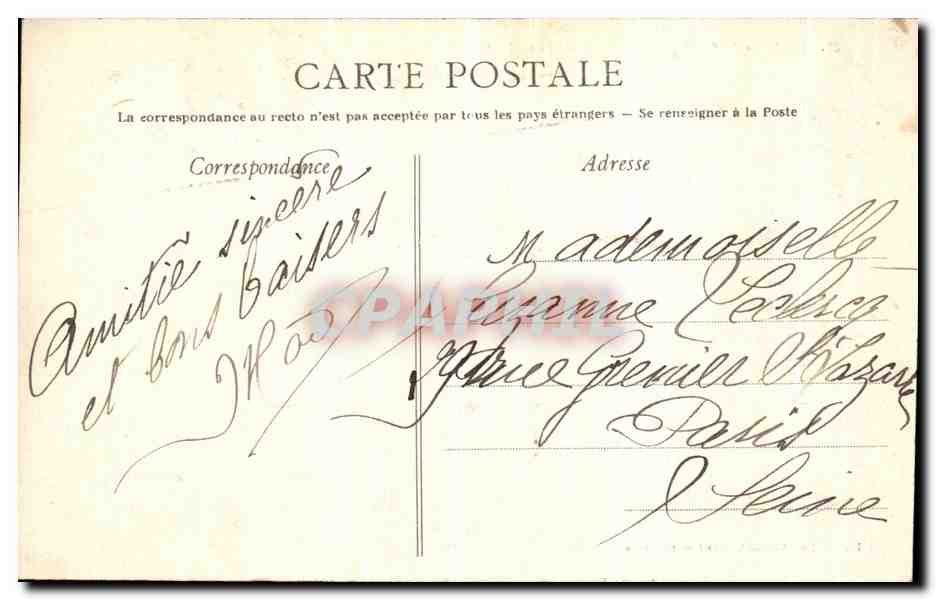 CARTE POSTALE
La correspondance au recto n'est pas acceptée par tous les pays étrangers — Se renseigner à la Poste
Correspondance
Amitié sincère
et bons baisers
Adresse
Mademoiselle
Suzanne Leclercq
rue Grenier St Lazare
Paris
Seine
CPAPHIL